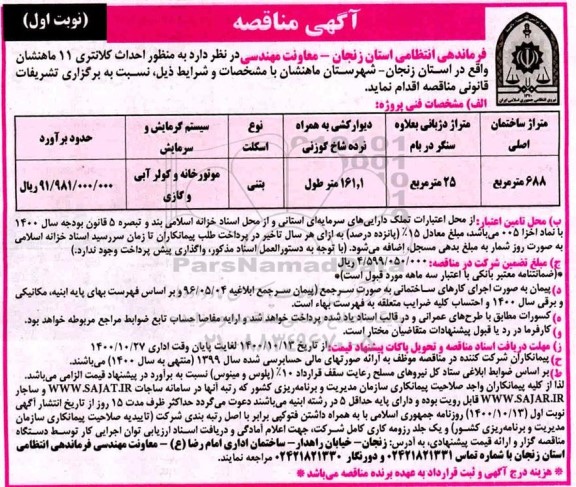 آگهی مناقصه
(نوبت اول)
فرماندهی انتظامی استان زنجان - معاونت مهندسی در نظر دارد به منظور احداث کلانتری ۱۱ ماهنشان
واقع در استان زنجان- شهرستان ماهنشان با مشخصات و شرایط ذیل، نسبت به برگزاری تشریفات
قانونی مناقصه اقدام نماید.
الف) مشخصات فنی پروژه:
متراژ ساختمان اصلی | متراژ دژبانی بعلاوه سنگر در بام | دیوارکشی به همراه نرده شاخ گوزنی | نوع اسکلت | سیستم گرمایش و سرمایش | حدود برآورد
۶۸۸ مترمربع | ۲۵ مترمربع | ۱۶۱,۱ متر طول | بتنی | موتورخانه و کولر آبی و گازی | ۹۱/۹۸۱/۰۰۰/۰۰۰ ریال
ب) محل تامین اعتبار: از محل اعتبارات تملک دارایی‌های سرمایه‌ای استانی و از محل اسناد خزانه اسلامی بند و تبصره ۵ قانون بودجه سال ۱۴۰۰
با نماد اخزا ۰۰۵ می‌باشد، مبلغ معادل ۱۵٪ (پانزده درصد) به ازای هر سال تاخیر در پرداخت طلب پیمانکاران تا زمان سررسید اسناد خزانه اسلامی
به صورت روز شمار به مبلغ بدهی مسجل، اضافه می‌شود. (با توجه به دستورالعمل اسناد مذکور، واگذاری پیش پرداخت وجود ندارد.)
ج) مبلغ تضمین شرکت در مناقصه: ۴/۵۹۹/۰۵۰/۰۰۰ ریال
*(ضمانتنامه معتبر بانکی با اعتبار سه ماهه مورد قبول است)*
د) پیمان به صورت اجرای کارهای ساختمانی به صورت سرجمع (پیمان سرجمع ابلاغیه ۹۶/۰۵/۰۴ و بر اساس فهرست بهای پایه ابنیه، مکانیکی
و برقی سال ۱۴۰۰ و احتساب کلیه ضرایب متعلقه به فهرست بهاء است.
ه) کسورات مطابق با طرح‌های عمرانی و در قالب اسناد یاد شده پرداخت خواهد شد و ارایه مفاصا حساب تابع ضوابط مراجع مربوطه خواهد بود.
و) کارفرما در رد یا قبول پیشنهادات متقاضیان مختار است.
ز) مهلت دریافت اسناد مناقصه و تحویل پاکات پیشنهاد قیمت: از تاریخ ۱۴۰۰/۱۰/۱۳ لغایت پایان وقت اداری ۱۴۰۰/۱۰/۲۷
ح) پیمانکاران شرکت کننده در مناقصه موظف به ارائه صورتهای مالی حسابرسی شده سال ۱۳۹۹ (منتهی به سال ۱۴۰۰) می‌باشند.
ط) بر اساس ضوابط ابلاغی ستاد کل نیروهای مسلح رعایت سقف قرارداد ۱۰٪ (پلوس و مینوس) نسبت به برآورد در پیشنهاد قیمت الزامی می‌باشد.
لذا از کلیه پیمانکاران واجد صلاحیت پیمانکاری سازمان مدیریت و برنامه‌ریزی کشور که رتبه آنها در سامانه ساجات WWW.SAJAT.IR و ساجار
WWW.SAJAR.IR قابل رویت بوده و دارای پایه حداقل ۵ در رشته ابنیه می‌باشند دعوت می‌گردد حداکثر ظرف مدت ۱۵ روز از تاریخ انتشار آگهی
نوبت اول (۱۴۰۰/۱۰/۱۳) روزنامه جمهوری اسلامی با به همراه داشتن فتوکپی برابر با اصل رتبه بندی شرکت (تاییدیه صلاحیت پیمانکاری سازمان
مدیریت و برنامه‌ریزی کشور) و یک جلد رزومه کاری کامل شرکت، جهت اعلام آمادگی و دریافت اسناد ارزیابی توان اجرایی کار توسط دستگاه
مناقصه گزار و ارائه قیمت پیشنهادی، به آدرس: زنجان- خیابان راهدار- ساختمان اداری امام رضا (ع) - معاونت مهندسی فرماندهی انتظامی
استان زنجان با شماره تماس ۰۲۴۲۱۸۲۱۳۳۱ و دورنگار ۰۲۴۲۱۸۲۱۳۳۰ مراجعه نمایند.
* هزینه درج آگهی و ثبت قرارداد به عهده برنده مناقصه می‌باشد *